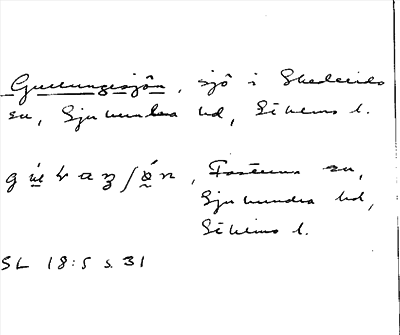 Gullungesjön, sjö i Skederids
sn, Sjuhundra hd, Sthlms l.
Fasterna sn,
Sjuhundra hd,
Sthlms l.
SL 18:5 s. 31